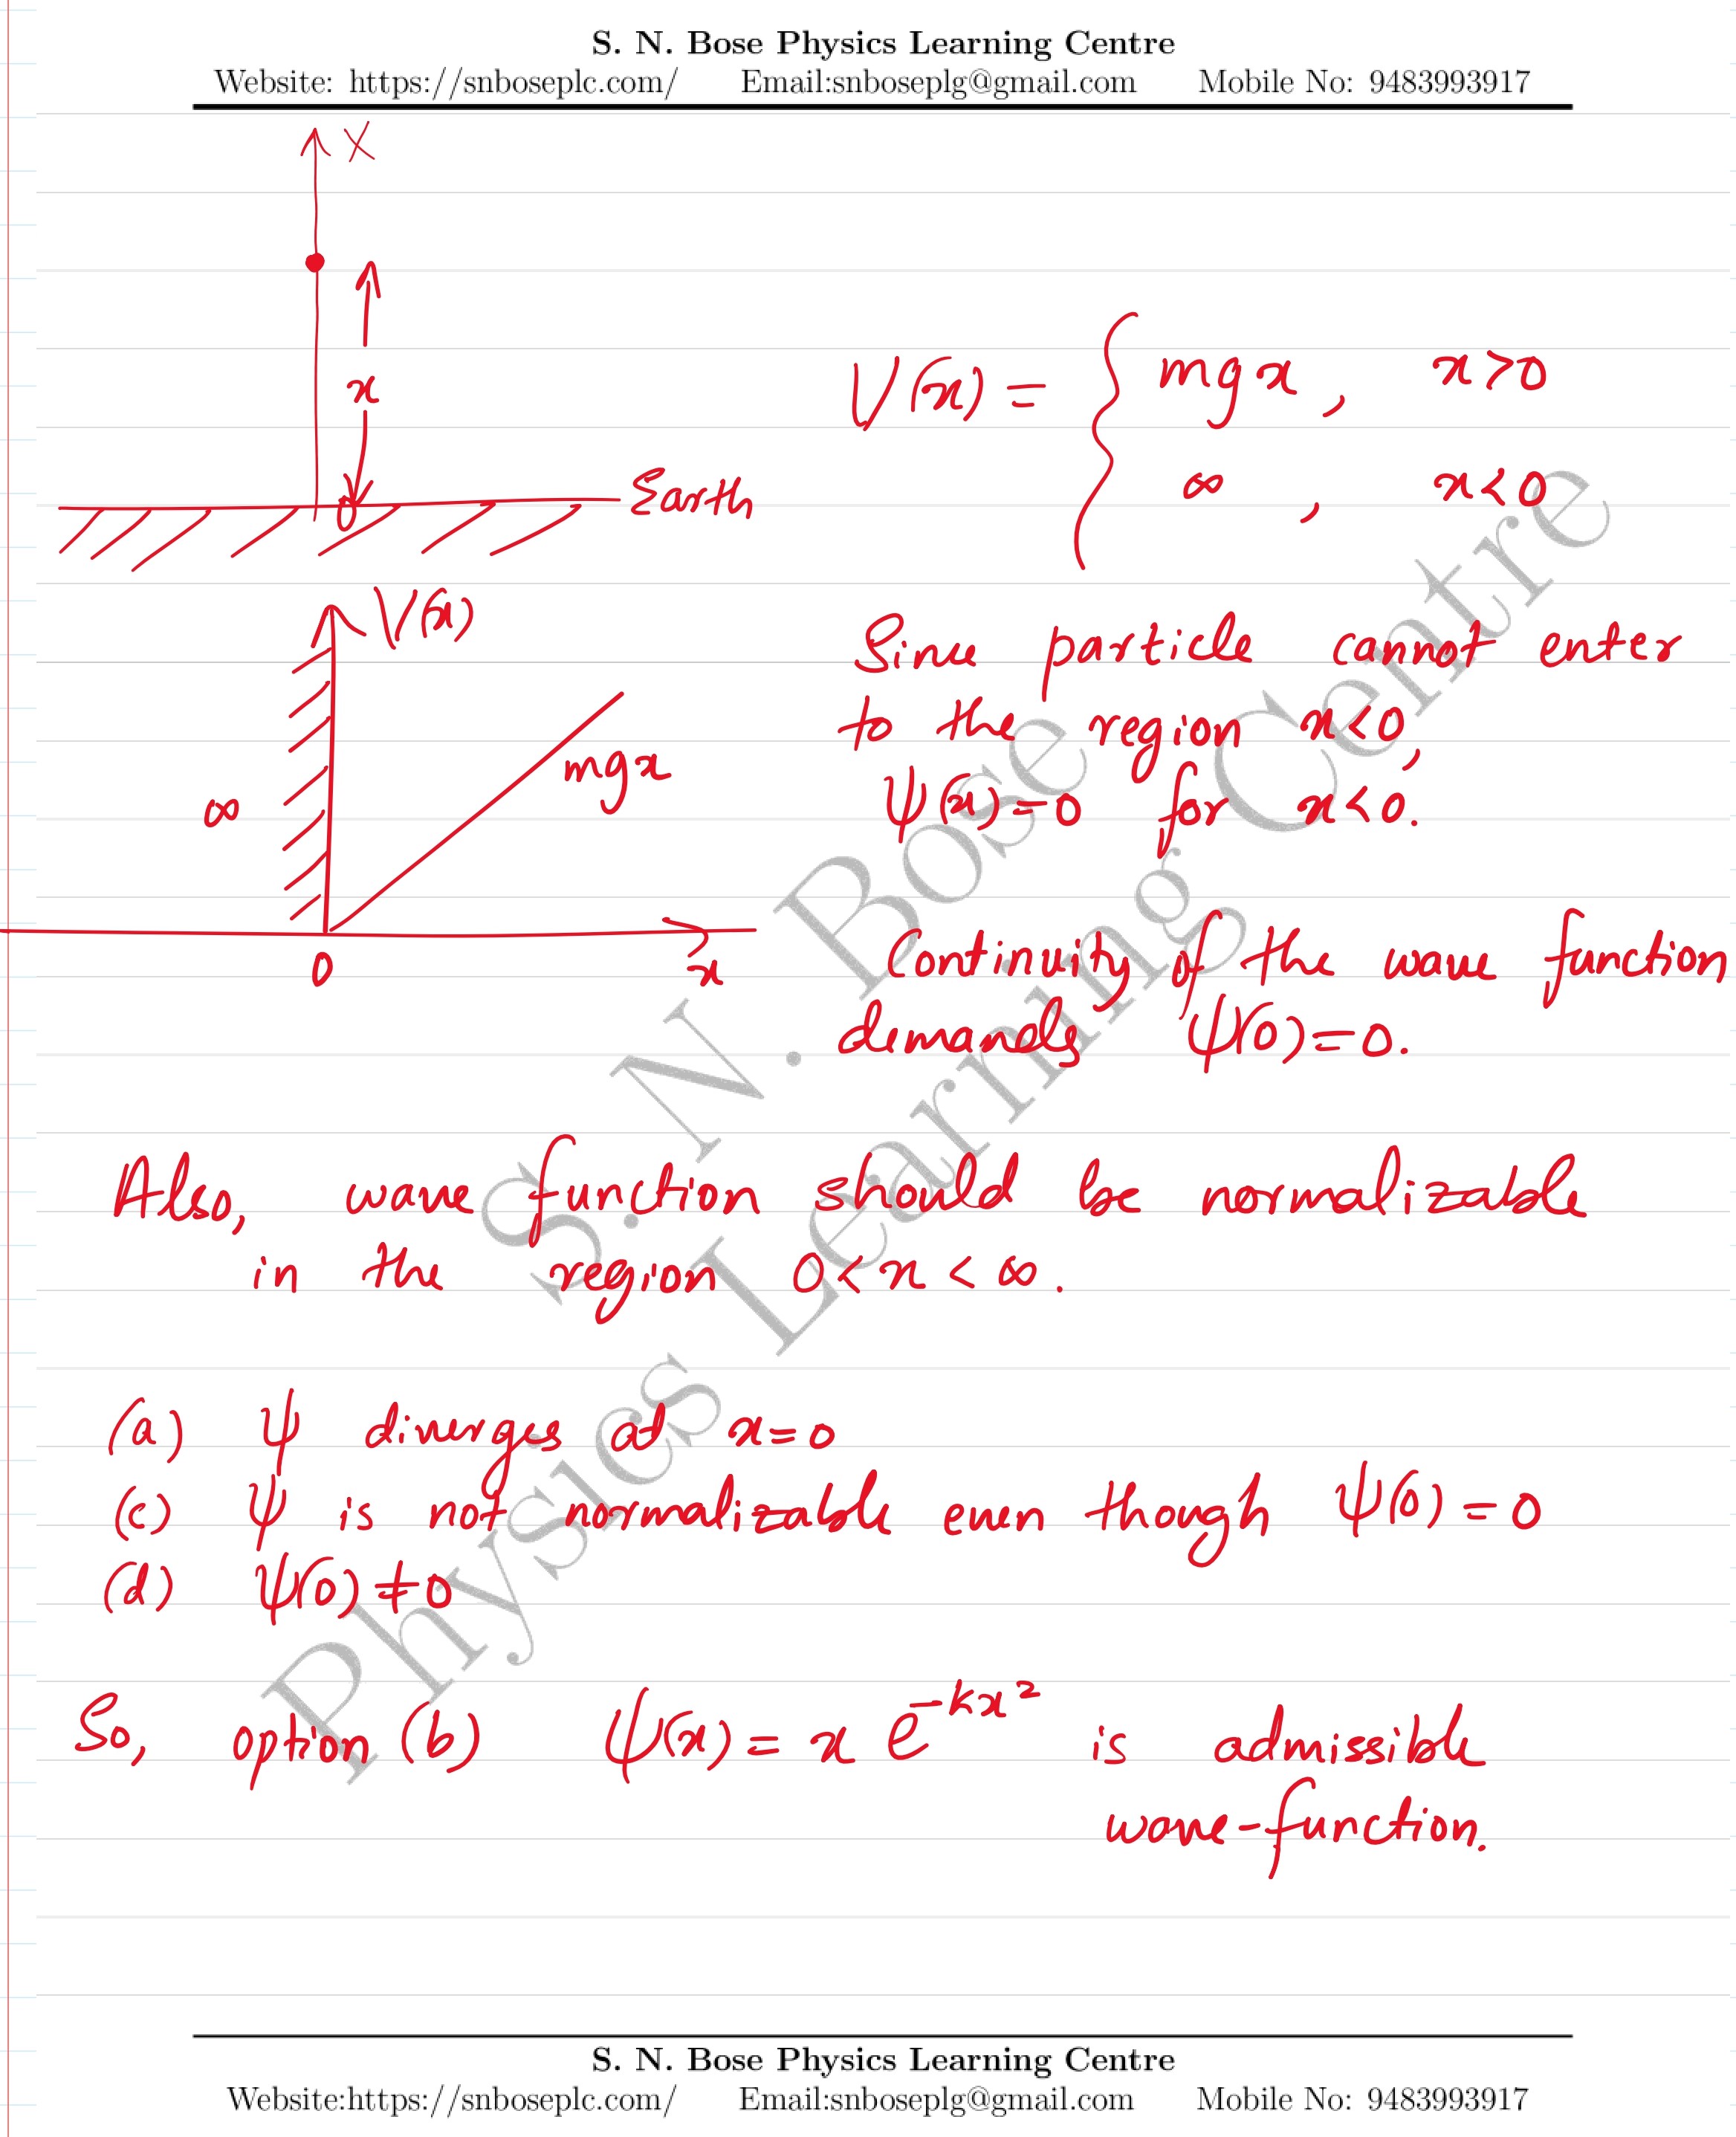 S. N. Bose Physics Learning Centre
Website: https://snboseplc.com/ Email:snboseplg@gmail.com Mobile No: 9483993917
X
x
0
Earth
V(x) = { mgx , x>0
∞ , x<0
V(x)
mgx
∞
0
x
Since particle cannot enter
to the region x<0,
ψ(x)=0 for x<0.
Continuity of the wave function
demands ψ(0)=0.
Also, wave function should be normalizable
in the region 0<x<∞.
(a) ψ diverges at x=0
(c) ψ is not normalizable even though ψ(0)=0
(d) ψ(0)≠0
So, option (b) ψ(x)= x e^{-kx²} is admissible
wave-function.
S. N. Bose
Physics Learning Centre
S. N. Bose Physics Learning Centre
Website:https://snboseplc.com/ Email:snboseplg@gmail.com Mobile No: 9483993917